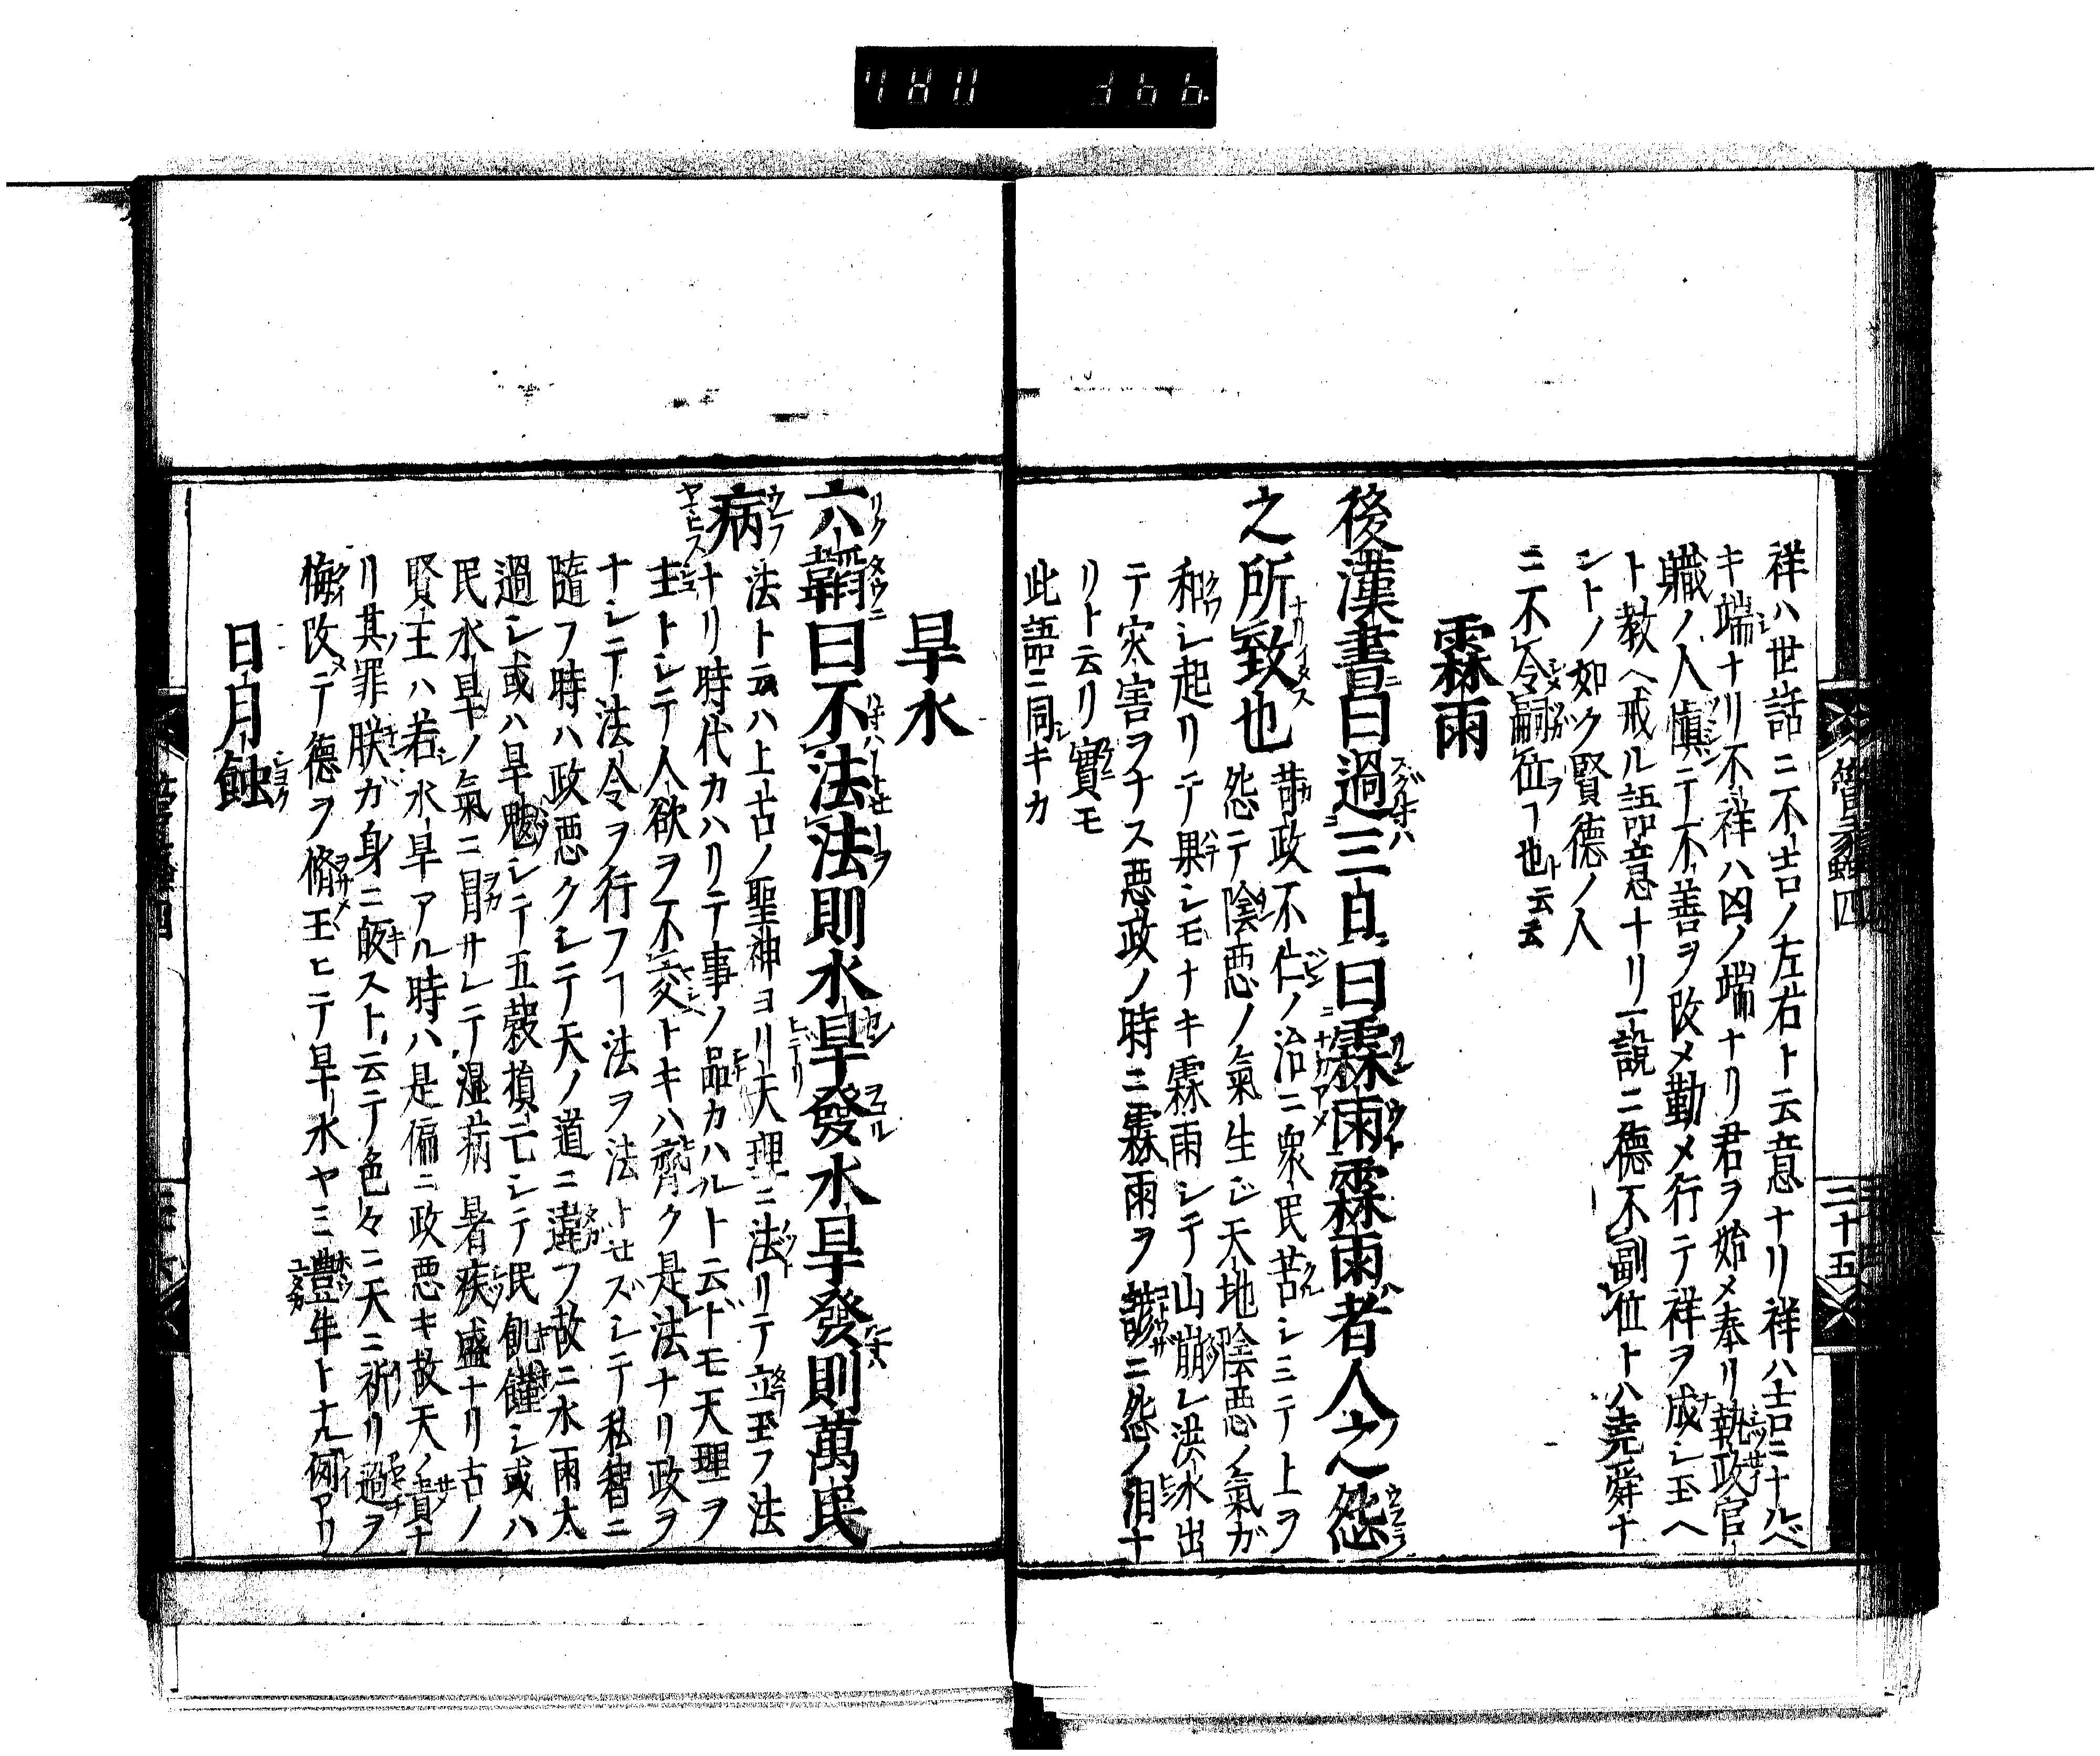 管蠡四
二十五
祥ハ世話ニ不吉ノ左右ト云意ナリ祥ハ吉ニナルベ
キ端ナリ不祥ハ凶ノ端ナリ君ヲ始メ奉リ執政官
職ノ人愼テ不善ヲ改メ勤メ行テ祥ヲ成シ玉ヘ
ト教ヘ戒ル語意ナリ一説ニ德不副位トハ堯舜ナ
ントノ如ク賢德ノ人
ニ不令嗣位ヿ也ト云云
霖雨
後漢書曰過三日曰霖雨霖雨者人之怨
之所致也
苛政不仁ノ治ニ衆民苦シミテ上ヲ
怨テ陰悪ノ氣生ジ天地陰悪ノ氣ガ
和シ起リテ果シモナキ霖雨シテ山崩レ洪水出
テ灾害ヲナス悪政ノ時ニ霖雨ヲ諺ニ怨ノ泪ナ
リト云リ實モ
此語ニ同キカ
旱水
六韜曰不法法則水旱發水旱發則萬民
病
法ト云ハ上古ノ聖神ヨリ天理ニ法リテ立玉フ法
ナリ時代カハリテ事ノ品カハルト云ドモ天理ヲ
主トシテ人欲ヲ不交トキハ齊ク是法ナリ政ヲ
ナシテ法令ヲ行フヿ法ヲ法トセズシテ私智ニ
隨フ時ハ政悪クシテ天ノ道ニ違フ故ニ水雨大
過シ或ハ旱魃シテ五穀損亡シテ民飢饉シ或ハ
民水旱ノ氣ニ冒サレテ湿病暑疾盛ナリ古ノ
賢王ハ若水旱アル時ハ是偏ニ政悪キ故天ノ責ナ
リ其罪朕ガ身ニ皈スト云テ色々ニ天ニ祈リ過ヲ
悔改メテ德ヲ脩玉ヒテ旱水ヤミ豐年トナル例アリ
日月蝕